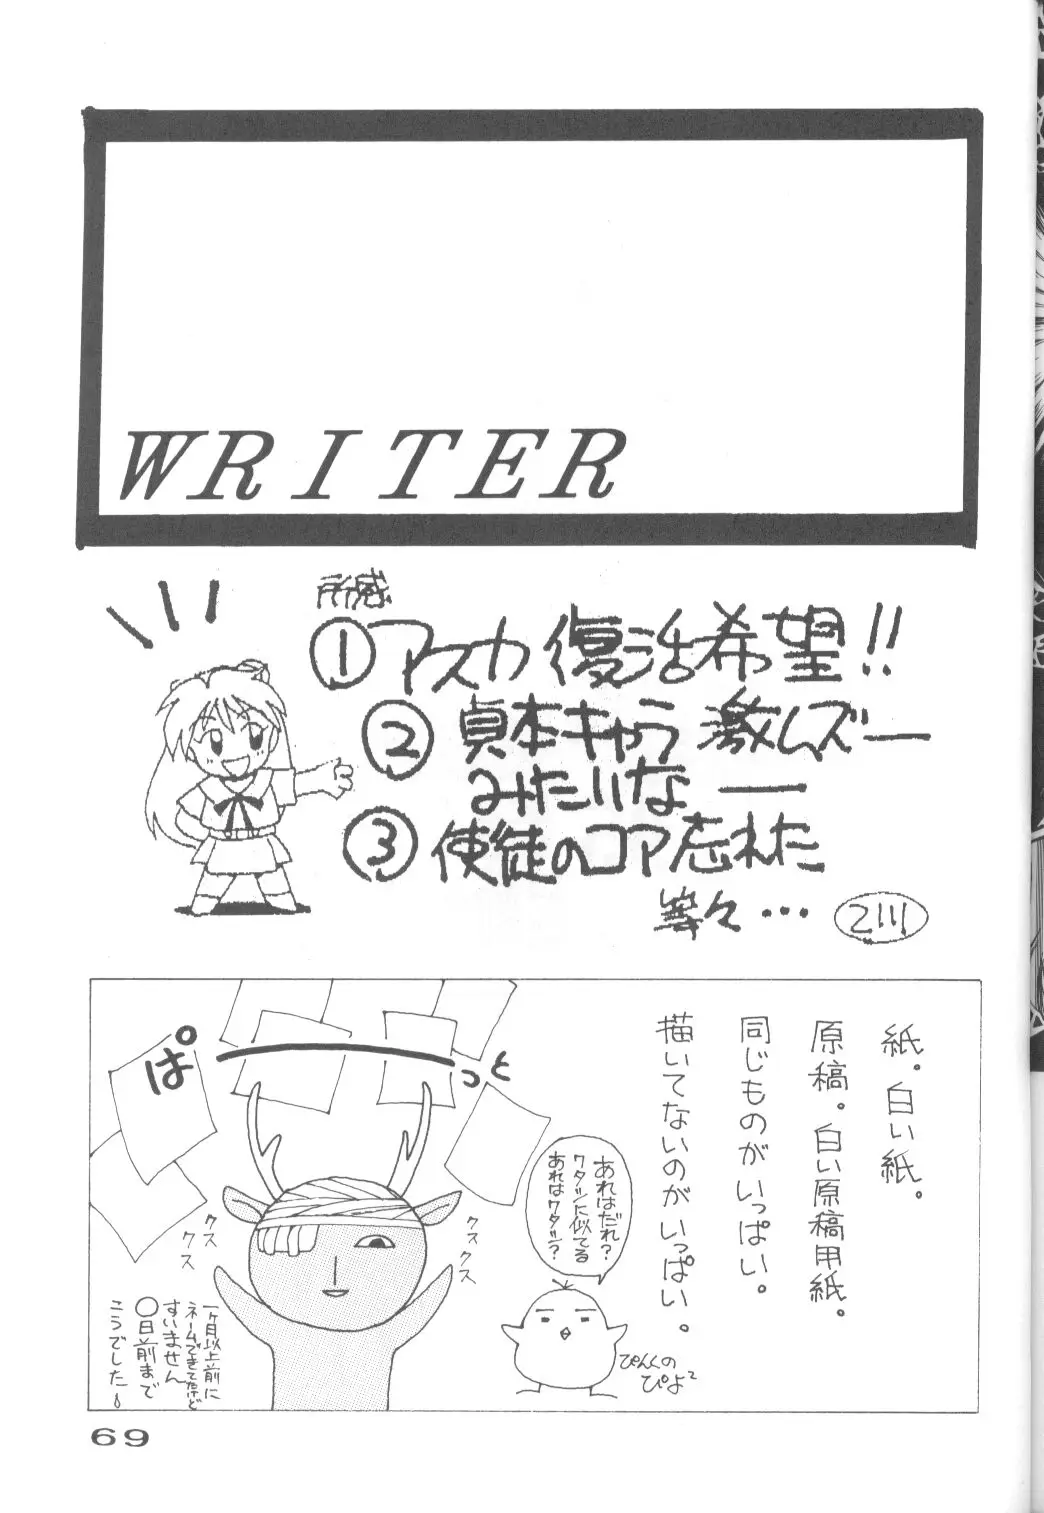 WRITER
所感
①アスカ復活希望!!
②貞本キャラ激ムズー
みたいなー
③使徒のコア忘れた
等々…
紙。白い紙。
原稿。白い原稿用紙。
同じものがいっぱい。
描いてないのがいっぱい。
ぱーっと
あれはだれ?
ワタシに似てる
あれはワタシ?
ぴんくの
ぴよ2
クスクス
クス
クス
一ヶ月以上前に
ネームできてたけど
すいません
○日前まで
こうでした
69